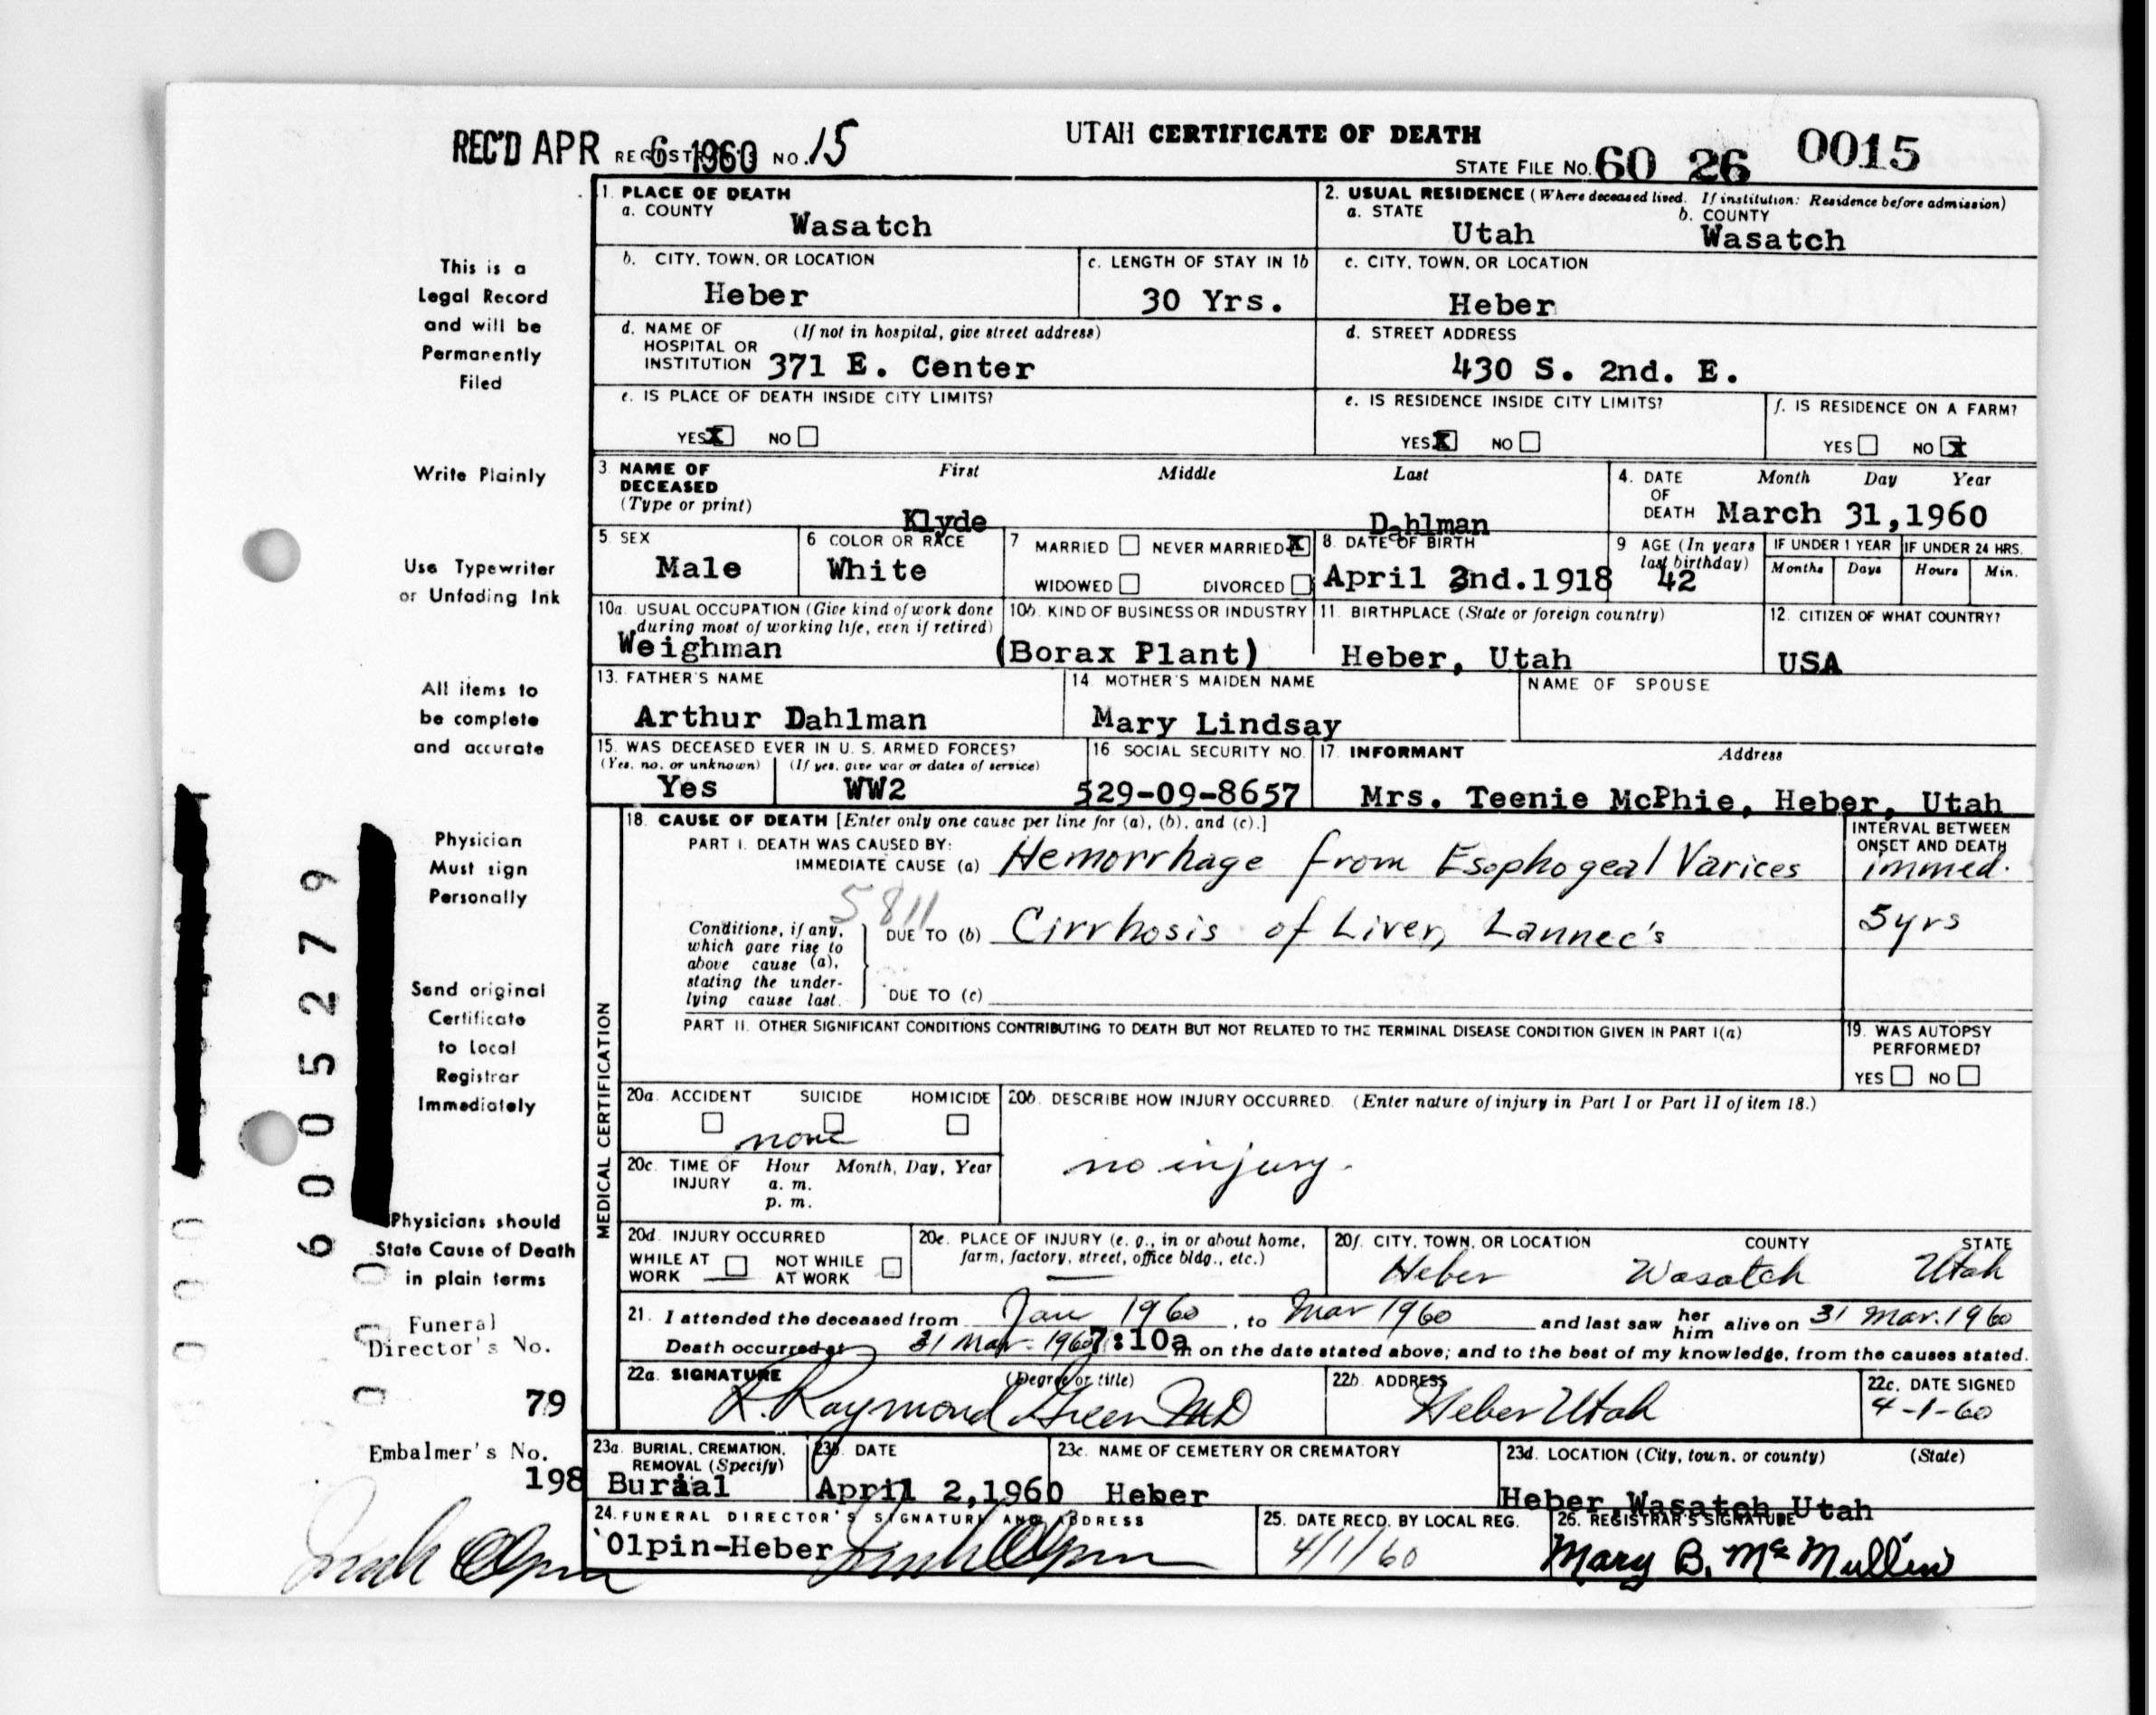 REC'D APR 6 1960 REGISTRAR'S NO. 15
UTAH CERTIFICATE OF DEATH
STATE FILE NO. 60 26 0015
1. PLACE OF DEATH
a. COUNTY
Wasatch
2. USUAL RESIDENCE (Where deceased lived. If institution: Residence before admission)
a. STATE b. COUNTY
Utah Wasatch
b. CITY, TOWN, OR LOCATION
Heber
c. LENGTH OF STAY IN 1b
30 Yrs.
c. CITY, TOWN, OR LOCATION
Heber
d. NAME OF (If not in hospital, give street address)
HOSPITAL OR
INSTITUTION 371 E. Center
d. STREET ADDRESS
430 S. 2nd. E.
e. IS PLACE OF DEATH INSIDE CITY LIMITS?
YES X NO
e. IS RESIDENCE INSIDE CITY LIMITS?
YES X NO
f. IS RESIDENCE ON A FARM?
YES NO X
3 NAME OF First Middle Last
DECEASED
(Type or print)
Klyde Dahlman
4. DATE Month Day Year
OF
DEATH March 31,1960
5. SEX
Male
6 COLOR OR RACE
White
7 MARRIED NEVER MARRIED X
WIDOWED DIVORCED
8. DATE OF BIRTH
April 2nd.1918
9 AGE (In years
last birthday)
42
IF UNDER 1 YEAR IF UNDER 24 HRS.
Months Days Hours Min.
10a. USUAL OCCUPATION (Give kind of work done
during most of working life, even if retired)
Weighman
10b. KIND OF BUSINESS OR INDUSTRY
(Borax Plant)
11. BIRTHPLACE (State or foreign country)
Heber, Utah
12. CITIZEN OF WHAT COUNTRY?
USA
13. FATHER'S NAME
Arthur Dahlman
14. MOTHER'S MAIDEN NAME
Mary Lindsay
NAME OF SPOUSE
15. WAS DECEASED EVER IN U. S. ARMED FORCES?
(Yes, no, or unknown) (If yes, give war or dates of service)
Yes WW2
16. SOCIAL SECURITY NO.
529-09-8657
17. INFORMANT Address
Mrs. Teenie McPhie, Heber, Utah
MEDICAL CERTIFICATION
18. CAUSE OF DEATH [Enter only one cause per line for (a), (b), and (c).]
INTERVAL BETWEEN
ONSET AND DEATH
PART I. DEATH WAS CAUSED BY:
IMMEDIATE CAUSE (a) Hemorrhage from Esophogeal Varices immed.
5811
Conditions, if any,
which gave rise to
above cause (a),
stating the under-
lying cause last.
DUE TO (b) Cirrhosis of Liver, Lannec's 5 yrs
DUE TO (c)
PART II. OTHER SIGNIFICANT CONDITIONS CONTRIBUTING TO DEATH BUT NOT RELATED TO THE TERMINAL DISEASE CONDITION GIVEN IN PART I(a)
19. WAS AUTOPSY
PERFORMED?
YES NO
20a. ACCIDENT SUICIDE HOMICIDE
none
20b. DESCRIBE HOW INJURY OCCURRED. (Enter nature of injury in Part I or Part II of item 18.)
no injury.
20c. TIME OF Hour Month, Day, Year
INJURY a. m.
p. m.
20d. INJURY OCCURRED
WHILE AT NOT WHILE
WORK AT WORK
20e. PLACE OF INJURY (e. g., in or about home,
farm, factory, street, office bldg., etc.)
20f. CITY, TOWN, OR LOCATION COUNTY STATE
Heber Wasatch Utah
21. I attended the deceased from Jan 1960, to Mar 1960 and last saw her him alive on 31 Mar. 1960
Death occurred at 31 Mar. 1960 7:10a m on the date stated above; and to the best of my knowledge, from the causes stated.
22a. SIGNATURE (Degree or title)
R. Raymond Green MD
22b. ADDRESS
Heber Utah
22c. DATE SIGNED
4-1-60
23a. BURIAL, CREMATION,
REMOVAL (Specify)
Burial
23b. DATE
April 2,1960
23c. NAME OF CEMETERY OR CREMATORY
Heber
23d. LOCATION (City, town, or county) (State)
Heber,Wasatch Utah
24. FUNERAL DIRECTOR'S SIGNATURE AND ADDRESS
Olpin-Heber Olpin
25. DATE RECD. BY LOCAL REG.
4/1/60
26. REGISTRAR'S SIGNATURE
Mary B. McMullin
This is a
Legal Record
and will be
Permanently
Filed
Write Plainly
Use Typewriter
or Unfading Ink
All items to
be complete
and accurate
Physician
Must sign
Personally
Send original
Certificate
to Local
Registrar
Immediately
Physicians should
State Cause of Death
in plain terms
Funeral
Director's No.
79
Embalmer's No.
198
Olpin
6005279